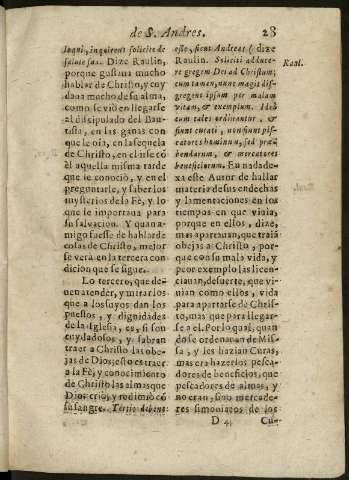 de S. Andres.
28
loqui, inquirent solicite de
salute sua. Dize Raulin,
porque gustaua mucho
hablar de Christo, y cuy
daua mucho de su alma,
como se viò en llegarse
al discipulado del Bau
tista, en las ganas con
que le oìa, en la sequela
de Christo, en el irse cõ
èl aquella misma tarde
que le conociò, y en el
preguntarle, y saber los
mysterios de la Fè, y lo
que le importaua para
su saluacion. Y quan a-
migo fuesse de hablar de
cosas de Christo, mejor
se verà en la tercera con
dicion que se sigue.
Lo tercero, que de-
uen atender, y mirar los
que a los suyos dan los
puestos, y dignidades
de la Iglesia, es, si son
cuydadosos, y sabran
traer a Christo las obe-
jas de Dios; esto es traer
a la Fè, y conocimiento
de Christo las almas que
Dios criò, y redimiò cõ
su sangre. Tertiò debent
esse, sicut Andreas (dize
Raulin. Soliciti adduce-
re gregem Dei ad Christum;
cum tamen, nunc magis dis-
gregens ipsum per malam
vitam, & exemplum. Heù
cum tales ordinantur, &
fiunt curati, non fiunt pis-
catores hominum, sed præu
bendarum, & mercatores
beneficiorum. En nada de-
xa este Autor de hallar
materia de sus endechas
y lamentaciones en los
tiempos en que viuia,
porque en ellos, dize,
mas apartauan, que traìã
obejas a Christo, por-
que con su mala vida, y
peor exemplo las licen-
ciauan, de suerte, que vi-
uian como ellos, vida
para apartarse de Chris-
to, mas que para llegar-
se a el. Por lo qual, quan
do se ordenauan de Mis-
sa, y les hazian Curas,
mas era hazerlos pesca-
dores de beneficios, que
pescadores de almas, y
no eran, sino mercade-
res simoniacos de los
Raul.
D 4
Cu-